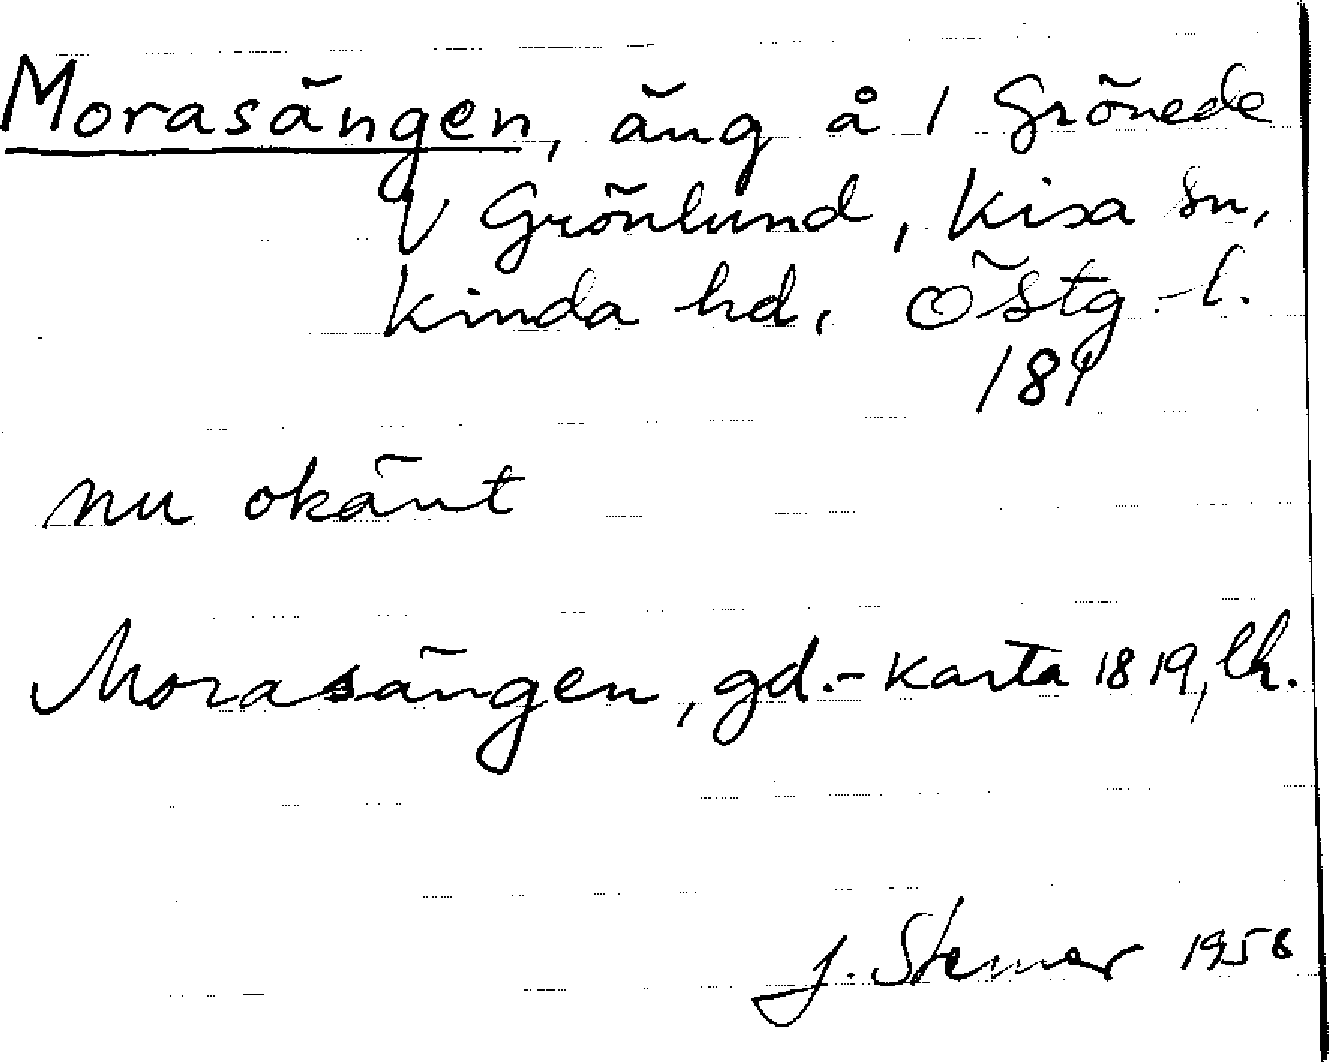 Morasängen, äng å 1 Grönede
V Grönlund, Kisa sn,
Kinda hd, Östg.-l.
181
nu okänt
Morasängen, gd.-karta 1819, lh.
J. Stemar 1956